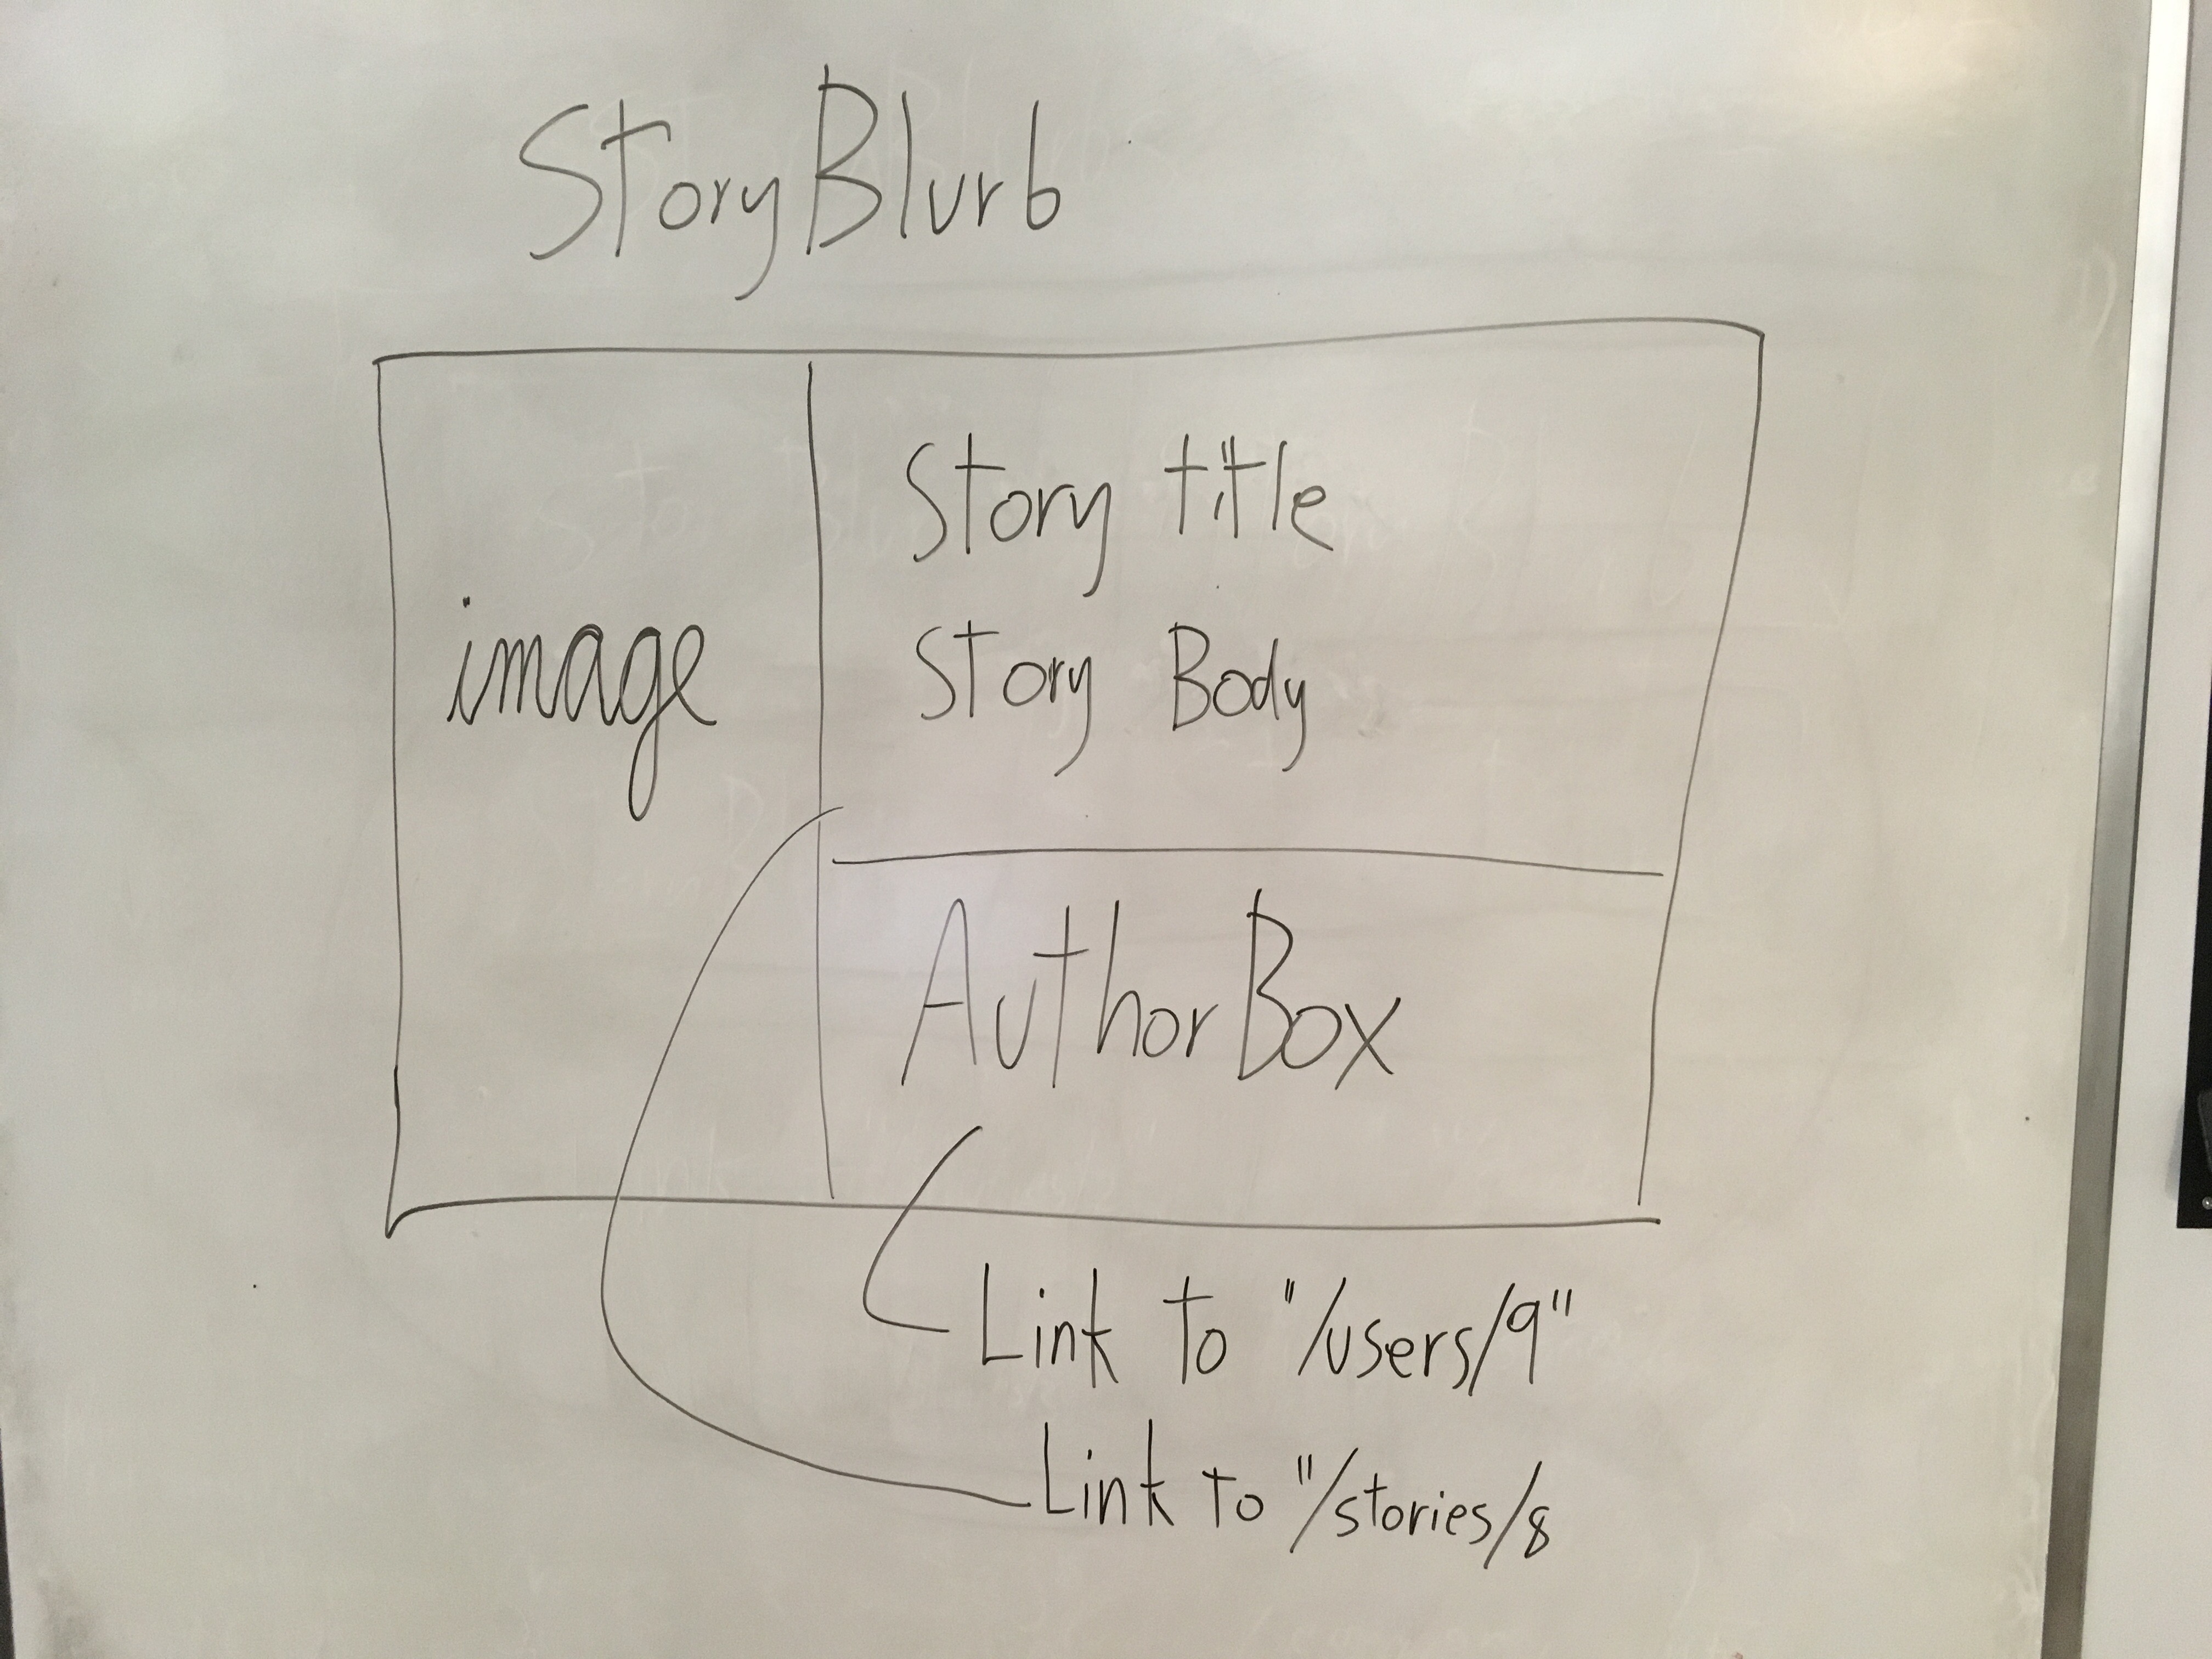 StoryBlurb
image
Story title
Story Body
AuthorBox
Link to "/users/9"
Link to "/stories/8